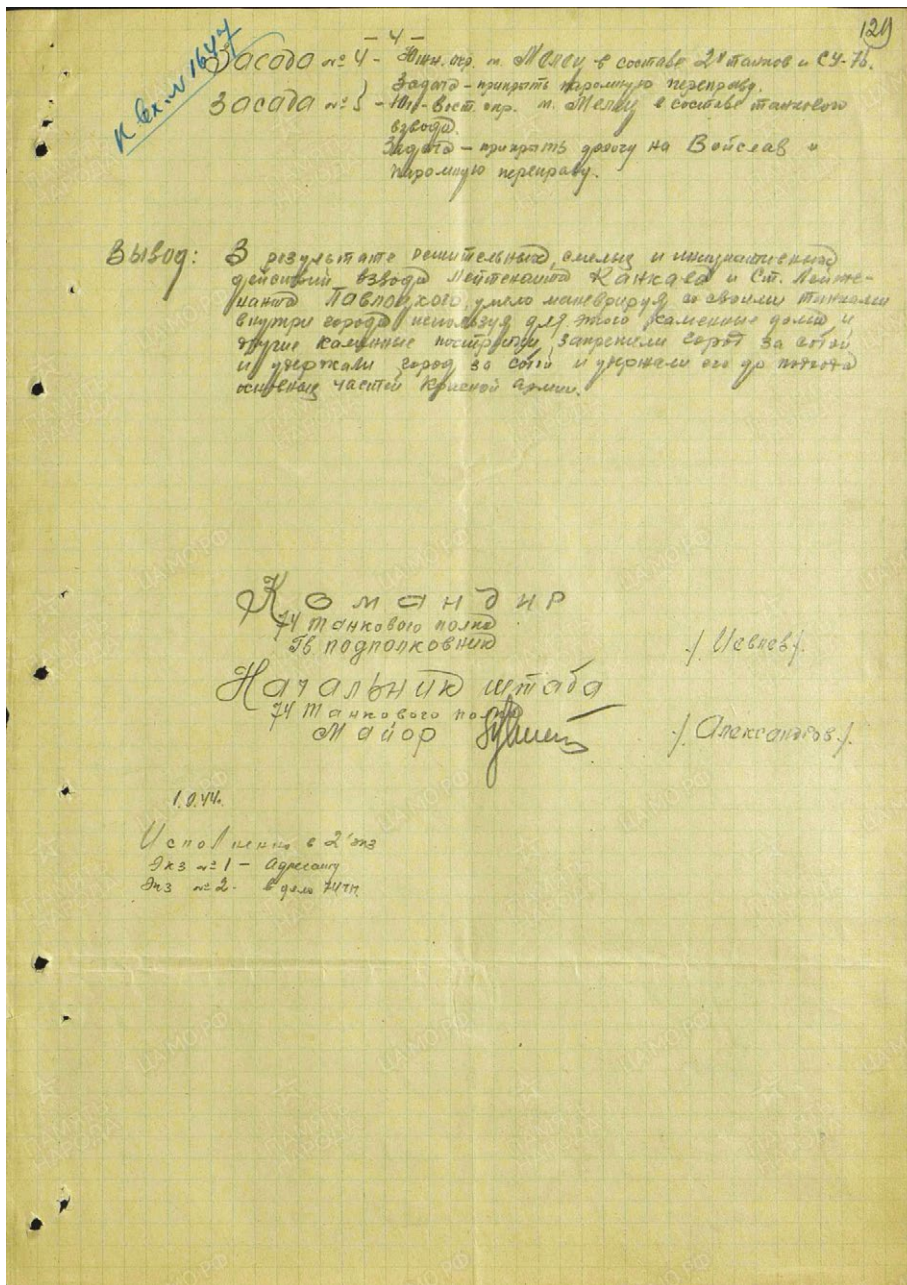 - 4 -
129
к вх. N 1647
Засада № 4 - Южн. окр. м. Мелец в составе 2х танков и СУ-76.
Задача - прикрыть паромную переправу.
Засада № 5 - Юго-Вост. окр. м. Мелец в составе танкового
взвода.
Задача - прикрыть дорогу на Войслав и
паромную переправу.
Вывод: В результате решительных, смелых и инициативных
действий взвода Лейтенанта и Ст. Лейте-
нанта умело маневрируя со своими танками
внутри города используя для этого каменные дома и
другие каменные постройки, закрепили город за собой
и удержали город за собой и удержали его до подхода
основных частей Красной Армии.
Командир
74 танкового полка
Гв. подполковник /Иевлев/.
Начальник штаба
74 танкового полка
Майор /Александров/.
Исполнено в 2 экз
Экз № 1 - Адресату
Экз № 2. в дело 74 тп.